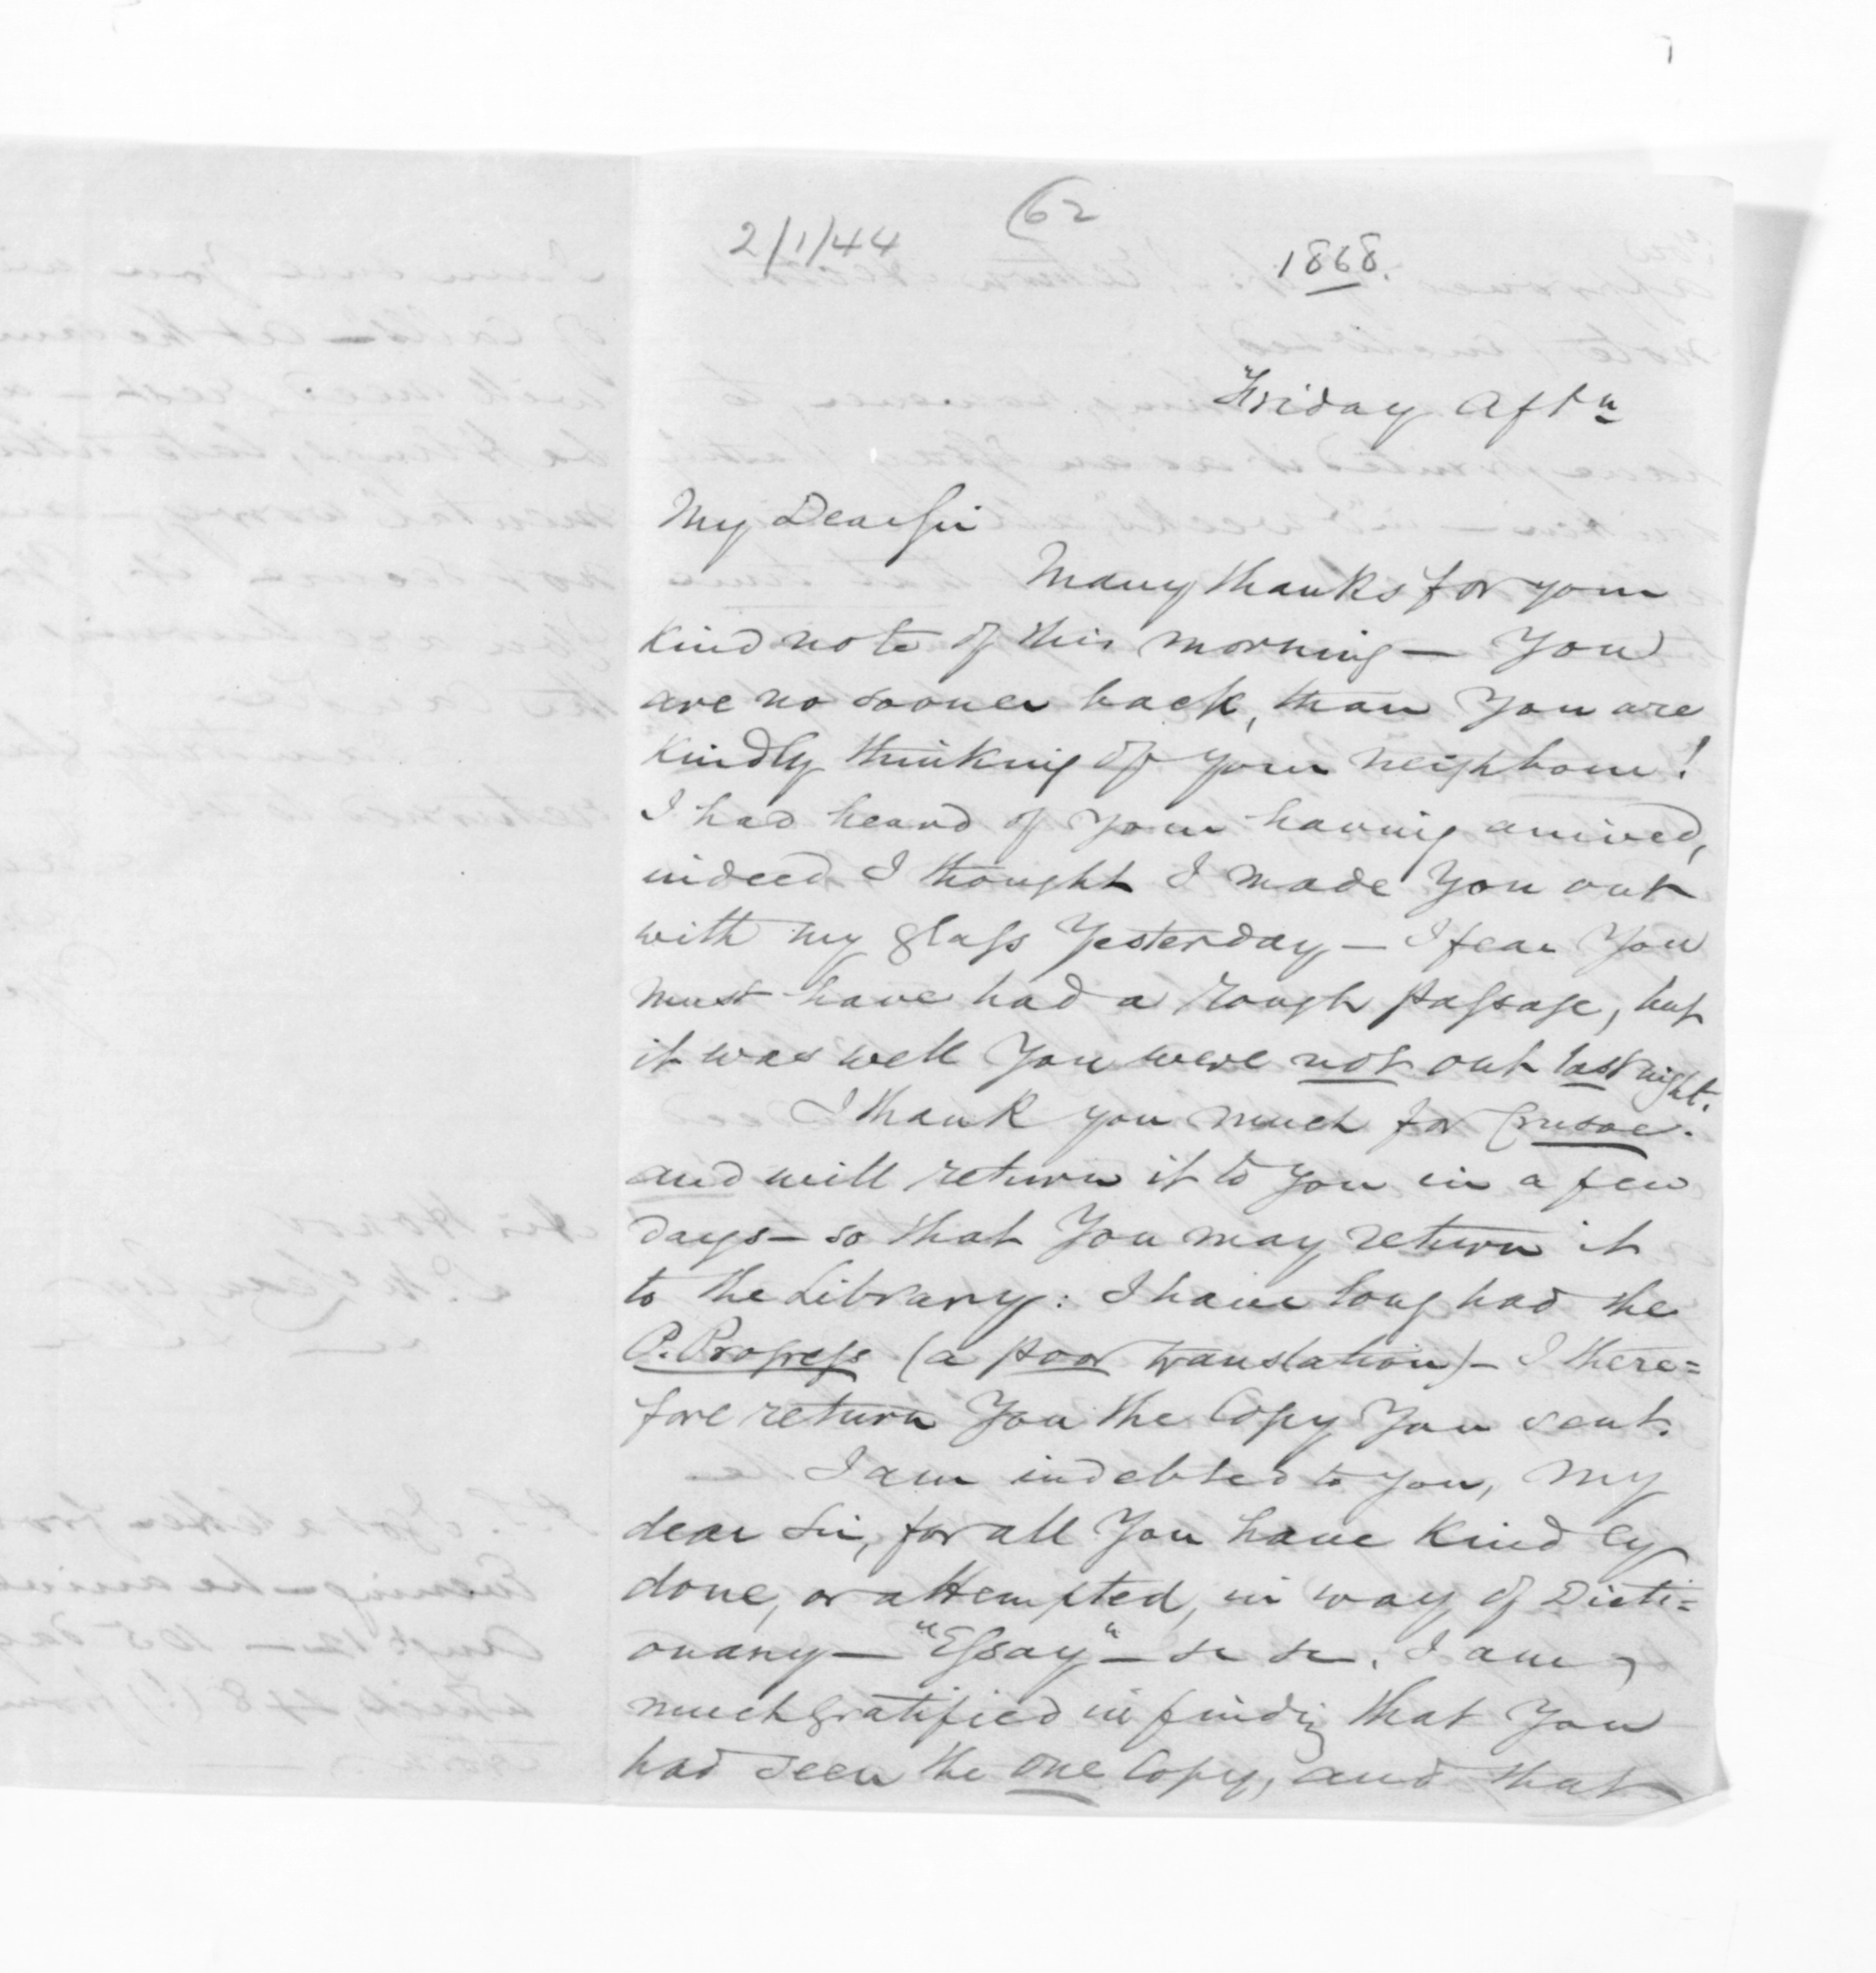 62
2/1/44
1868.
Friday Aftn
My Dear Sir
Many thanks for your
kind note of this morning — You
are no sooner back, than You are
kindly thinking of your neighbour!
I had heard of Your having arrived,
indeed I thought I made You out
with my glass Yesterday — I fear You
must have had a rough passage, but
it was well You were not out last night.
I thank you much for Crusoe.
and will return it to You in a few
days — so that You may return it
to the Library: I have long had the
P. Progress (a poor translation) — I there=
fore return You the Copy You sent.
I am indebted to You, My
dear Sir, for all You have Kindly
done, or attempted, in way of Dicti=
onary — "Essay" — &c &c. I am
much gratified in finding that You
had seen the one Copy, and that